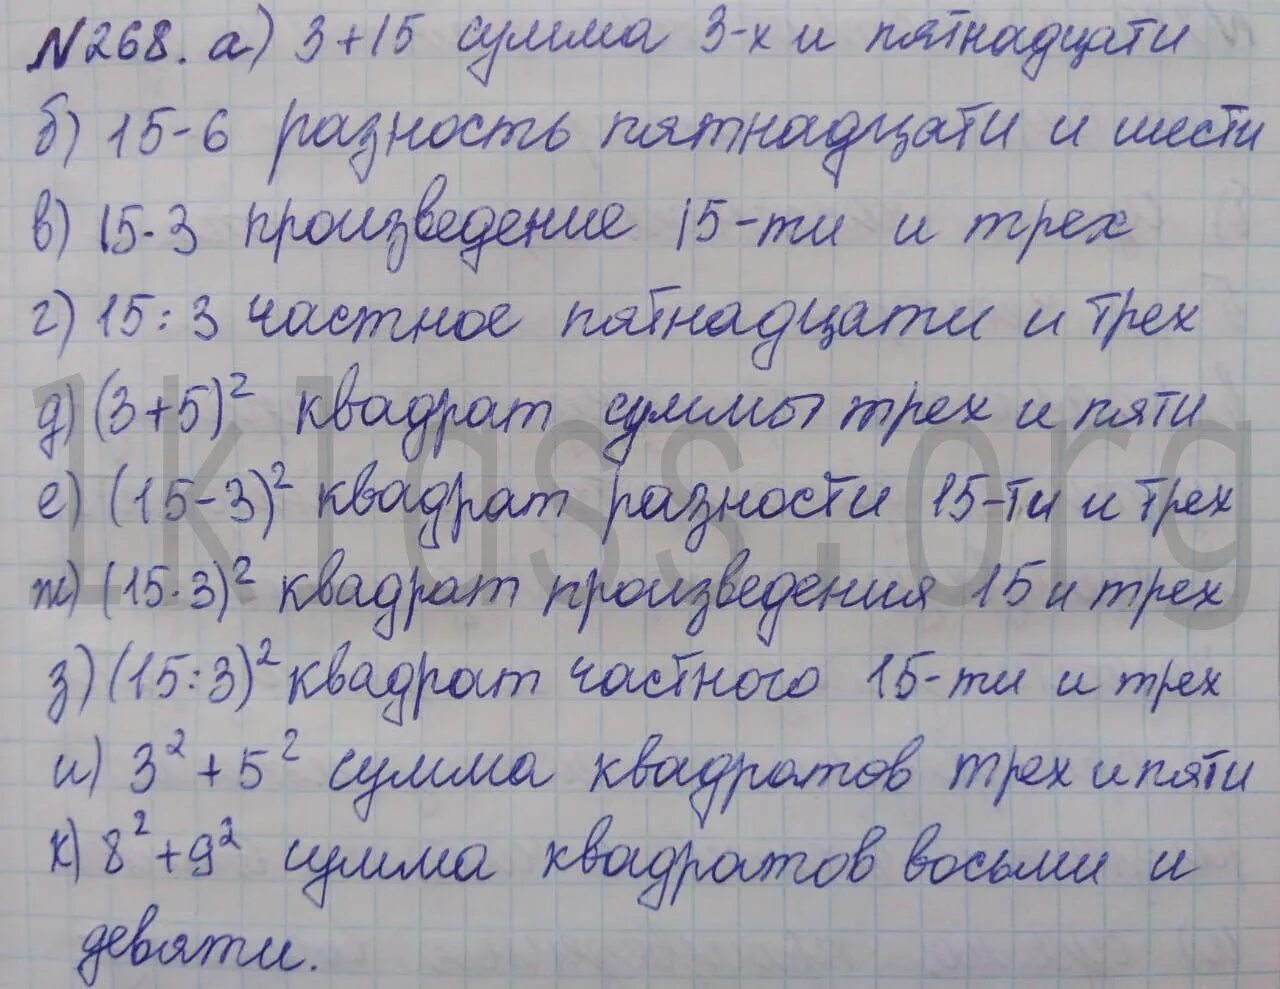 №268. а) 3+15 сумма 3-х и пятнадцати
б) 15-6 разность пятнадцати и шести
в) 15·3 произведение 15-ти и трех
г) 15:3 частное пятнадцати и трех
д) (3+5)² квадрат суммы трех и пяти
е) (15-3)² квадрат разности 15-ти и трех
ж) (15·3)² квадрат произведения 15 и трех
з) (15:3)² квадрат частного 15-ти и трех
и) 3²+5² сумма квадратов трех и пяти
к) 8²+9² сумма квадратов восьми и
девяти.
1klass.org